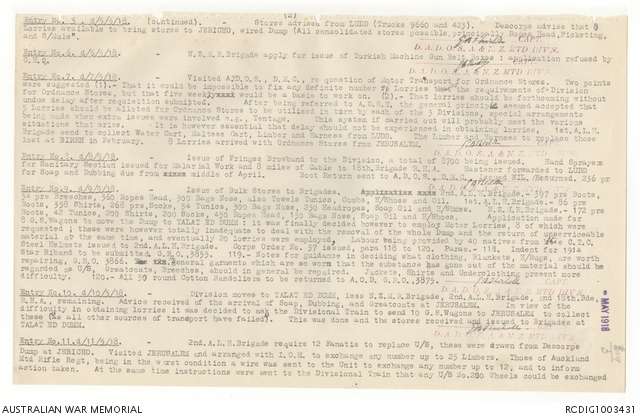 (2)
Entry No. 5. d/5/5/18. (continued). - Stores advised from LUDD (Trucks 9660 and 425). Descorps advise that 8
Lorries available to bring stores to JERICHO, wired Dump (All consolidated stores possible, principally Ropes Head, Picketing,
and S/Nals".
CAPT.
D. A. D. O. S. A. & N. Z. MTD DIVN.
Entry No. 6. d/6/5/18. - N.Z.M.R. Brigade apply for issue of Turkish Machine Gun Belt Boxes : application refused by
G.H.Q.
D. A. D. O. S. A. & N. Z. MTD DIVN.
Entry No. 7. d/7/5/18. - Visited A/D.O.S., D.M.C., re question of Motor Transport for Ordnance Stores. Two points
were suggested (1).- That it would be impossible to fix any definite number of Lorries to meet the requirements of Division
for Ordnance Stores, but that five would be a basis to work on. (2).- That lorries should be forthcoming without
undue delay after requisition submitted. After being referred to A.D.S.T. the general principle seemed accepted that
5 Lorries should be allotted for Ordnance Stores to be utilised in turn by each of the 3 Divisions, special arrangements
being made when extra issues were involved e.g., Tentage. This system if carried out will probably meet the various
situations that arise. It is however essential that delay should not be experienced in obtaining lorries. 1st. A.L.H.
Brigade send to collect Water Cart, Maltese Cart, Limber and Harness from LUDD. The Limber and Harness to replace those
lost at BIREH in February. 8 Lorries arrived with Ordnance Stores from JERUSALEM.
D. A. D. O. S. A. & N. Z. MTD DIVN.
Entry No. 8. d/8/5/18. - Issue of Fringes Browband to the Division, a total of 5700 being issued. Hand Sprayers
for Sanitary Section issued for Malarial Work and 8 miles of Cable to 18th, Brigade R.H.A. Hastener forwarded to LUDD
for Soap and Dubbing due from middle of April. Boot Return sent to A.D.O.S., D.M.C. Issued Nil, Returned, 256 pr
Entry No. 9. d/9/5/18. - Issue of Bulk Stores to Brigades. 2nd. A.L.H. Brigade.- 397 prs Boots,
54 prs Breeches, 360 Ropes Head, 300 Bags Nose, also Towels Tunics, Combs, H/Shoes and Oil. 1st. A.L.H. Brigade.- 86 prs
Boots, 350 Shirts, 268 prs, Socks, 54 Tunics, 300 Bags Nose, 350 Headropes, Soap Oil and H/Shoes. N.Z.M.R. Brigade.- 172 prs
Boots, 42 Tunics, 200 Shirts, 200 Socks, 450 Ropes Head, 150 Bags Nose, Soap Oil and H/Shoes. Application made for
5 G.S. Wagons to move the Dump to TALAT ED DUMM ; it was finally decided however to employ Motor Lorries, 8 of which were
requested ; these were however totally inadequate to deal with the removal of the whole Dump and the return of unserviceable
material at the same time, and eventually 20 lorries were employed. Labour being provided by 40 natives from the E.L.C.
Steel Helmets issued to 2nd. A.L.H. Brigade. Corps Order No. 57 issued, para 118 to 120. Paras.- 118, Indent for 1914
Star Riband to be submitted. G.R.O. 3855. 119.- Notes for guidance in deciding what clothing, Blankets & Rugs, are worth
repairing, G.R.O. 3866. General garments which are so worn that the substance has gone out of the material should be
regarded as U/S, Greatcoats, Breeches, should in general be required. Jackets, Shirts and Underclothing present more
difficulty. 120.- All 50 round Cotton Bandoliers to be returned to A.O.D. G.R.O. 3875.
D. A. D. O. S. A. & N. Z. MTD DIVN.
Entry No. 10. d/10/5/18. Division moves to TALAT ED DUMM, less N.Z.M.R. Brigade, 2nd. A.L.H. Brigade, and 18th. Bde.
R.H.A. remaining. Advice received of the arrival of Soap, Dubbing, and Greatcoats at JERUSALEM. In view of the
difficulty in obtaining lorries it was decided to ask the Divisional Train to send 10 G.S. Wagons to JERUSALEM to collect
these (as all other sources of transport have failed). This was done and the stores received and issued to Brigades at
TALAT ED DUMM.
MAY 1918
Entry No. 11. d/11/5/18. - 2nd. A.L.H. Brigade require 12 Fanatis to replace U/S, these were drawn from Descorps
Dump at JERICHO. Visited JERUSALEM and arranged with I.O.M. to exchange any number up to 25 Limbers. Those of Auckland
Mtd Rifle Regt, being in the worst condition a wire was sent to the Unit to exchange any number up to 12, and to inform
action taken. At the same time instructions were sent to the Divisional Train that any U/S No. 200 Wheels could be exchanged
AUSTRALIAN WAR MEMORIAL
RCDIG1003431